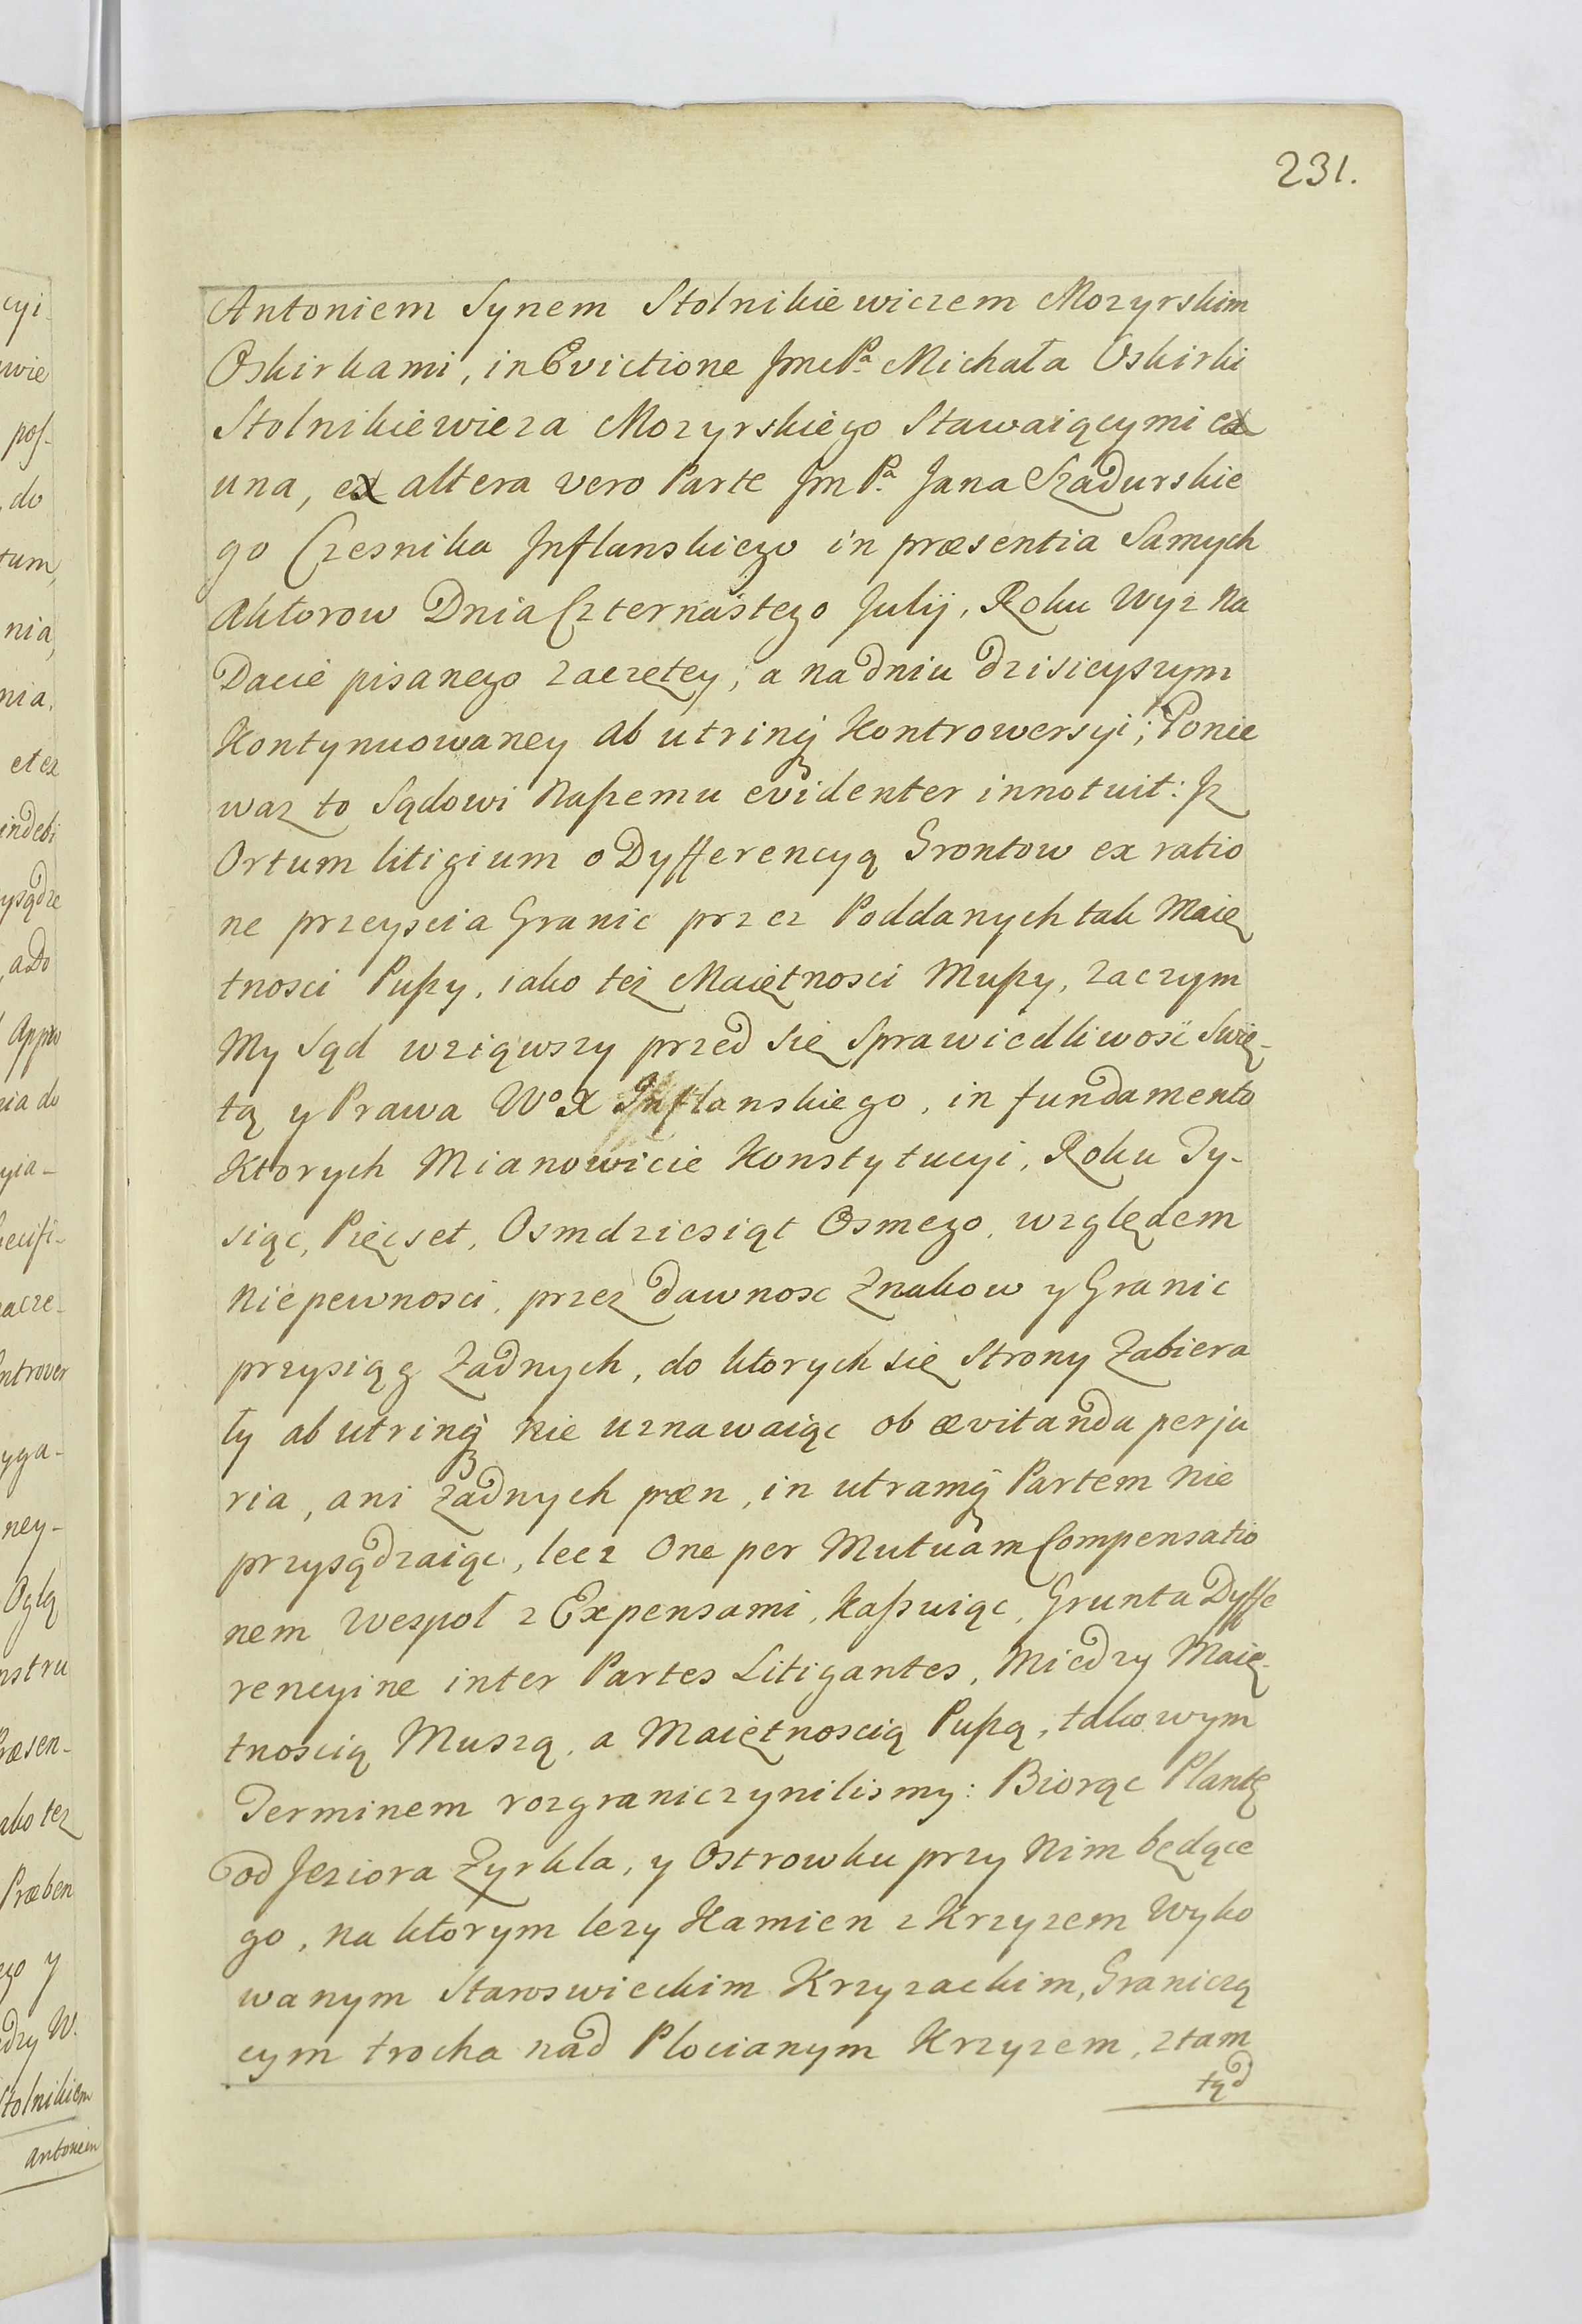 231.
Antoniem Synem Stolnikiewiczem Mozyrskim
Oskirkami, in Evictione Jmć Pa Michała Oskirki
Stolnikiewicza Mozyrskiego Stawaiącymi ex
una, ex altera vero Parte Jm Pa Jana Szadurskie
go Czesnika Inflanskiego in præsentia Samych
Aktorow Dnia Czternastego Julij, Roku Wyz Na
Dacie pisanego zaczętey, a na dniu dzisieyszym
Kontynuowaney ab utrinq Kontrowersyi; Ponie
waz to Sądowi Naszemu evidenter innotuit: Jz
Ortum litigium o Dyfferencyą Grontow ex ratio
ne przeyscia Granic przez Poddanych tak Maię
tnosci Puszy, iako też Maiętnosci Muszy, zaczym
My Sąd wziąwszy przed się Sprawiedliwość Swię-
tą y Prawa Wo X Inflanskiego, in fundamento
Ktorych Mianowicie Konstytucyi, Roku Ty-
siąc, Pięcset, Osmdziesiąt Osmego, względem
Niepewnosci, przez dawnosc Znakow y Granic
przysiąg Zadnych, do ktorych się Strony Zabiera
ły ab utrinq nie uznawaiąc ob ævitanda perju
ria, ani żadnych pæn, in utramq Partem Nie
przysądzaiąc, lecz One per Mutuam Compensatio
nem wespoł z Expensami, Kaszuiąc, Grunta Dyffe
rencyine inter Partes Litigantes, Miedzy Maię-
tnoscią Muszą, a Maiętnoscią Puszą, takowym
Terminem rozgraniczynilismy: Biorąc Plantę
od Jeziora Zyrkla, y Ostrowku przy Nim będące
go, na ktorym lezy Kamien z Krzyzem Wyko
wanym Staroswieckim Krzyzackim, Graniczą
cym trocha nad Plocianym Krzyzem, ztam
tąd